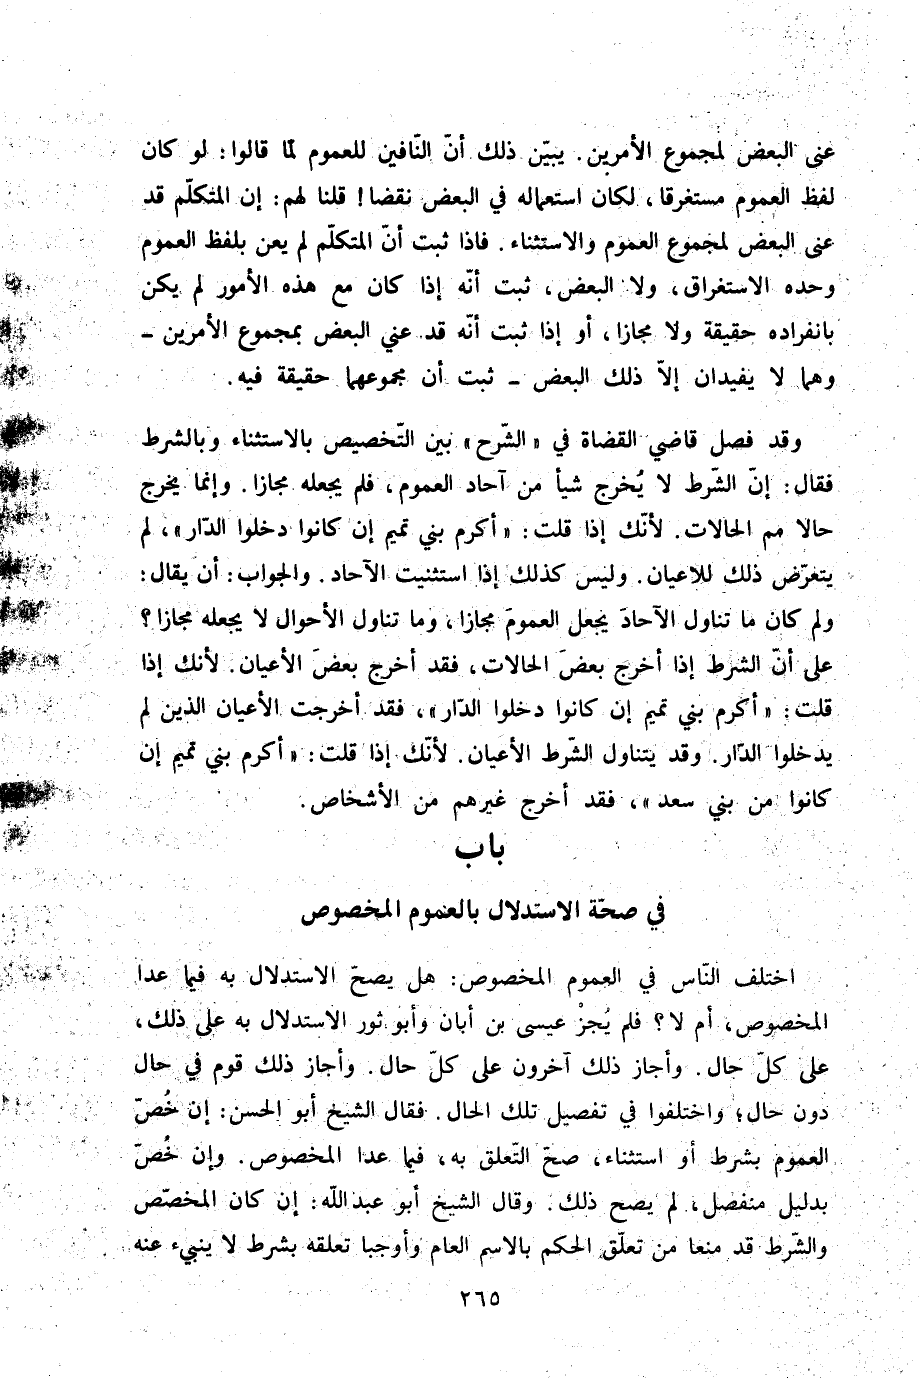 عنى البعض لمجموع الأمرين. يبيّن ذلك أنّ النّافين للعموم لمّا قالوا: لو كان
لفظ العموم مستغرقا، لكان استعماله في البعض نقضا! قلنا لهم: إن المتكلّم قد
عنى البعض لمجموع العموم والاستثناء. فاذا ثبت أنّ المتكلّم لم يعن بلفظ العموم
وحده الاستغراق، ولا البعض، ثبت أنّه إذا كان مع هذه الأمور لم يكن
بانفراده حقيقة ولا مجازا، أو إذا ثبت أنّه قد عني البعض بمجموع الأمرين ـ
وهما لا يفيدان إلاّ ذلك البعض ـ ثبت أن مجموعهما حقيقة فيه.
وقد فصل قاضي القضاة في « الشّرح » بين التّخصيص بالاستثناء وبالشرط
فقال: إنّ الشّرط لا يُخرج شيأ من آحاد العموم، فلم يجعله مجازا. وإنما يخرج
حالا مم الحالات. لأنّك إذا قلت: « أكرم بني تميم إن كانوا دخلوا الدّار »، لم
يتعرّض ذلك للاعيان. وليس كذلك إذا استثنيت الآحاد. والجواب: أن يقال:
ولم كان ما تناول الآحادَ يجعل العمومَ مجازا، وما تناول الأحوال لا يجعله مجازا؟
على أنّ الشرط إذا أخرج بعضَ الحالات، فقد أخرج بعضَ الأعيان. لأنك إذا
قلت: « أكرم بني تميم إن كانوا دخلوا الدّار »، فقد أخرجت الأعيان الذين لم
يدخلوا الدّار. وقد يتناول الشّرط الأعيان. لأنّك إذا قلت: « أكرم بني تميم إن
كانوا من بني سعد »، فقد أخرج غيرهم من الأشخاص.
باب
في صحّة الاستدلال بالعموم المخصوص
اختلف النّاس في العموم المخصوص: هل يصحّ الاستدلال به فيما عدا
المخصوص، أم لا؟ فلم يُجزْ عيسى بن أبان وأبو ثور الاستدلال به على ذلك،
على كلّ حال. وأجاز ذلك آخرون على كلّ حال. وأجاز ذلك قوم في حال
دون حال؛ واختلفوا في تفصيل تلك الحال. فقال الشيخ أبو الحسن: إن خُصّ
العموم بشرط أو استثناء، صحّ التّعلق به، فيما عدا المخصوص. وإن خُصّ
بدليل منفصل، لم يصح ذلك. وقال الشيخ أبو عبدالله: إن كان المخصّص
والشّرط قد منعا من تعلّق الحكم بالاسم العام وأوجبا تعلقه بشرط لا ينبيء عنه
٢٦٥